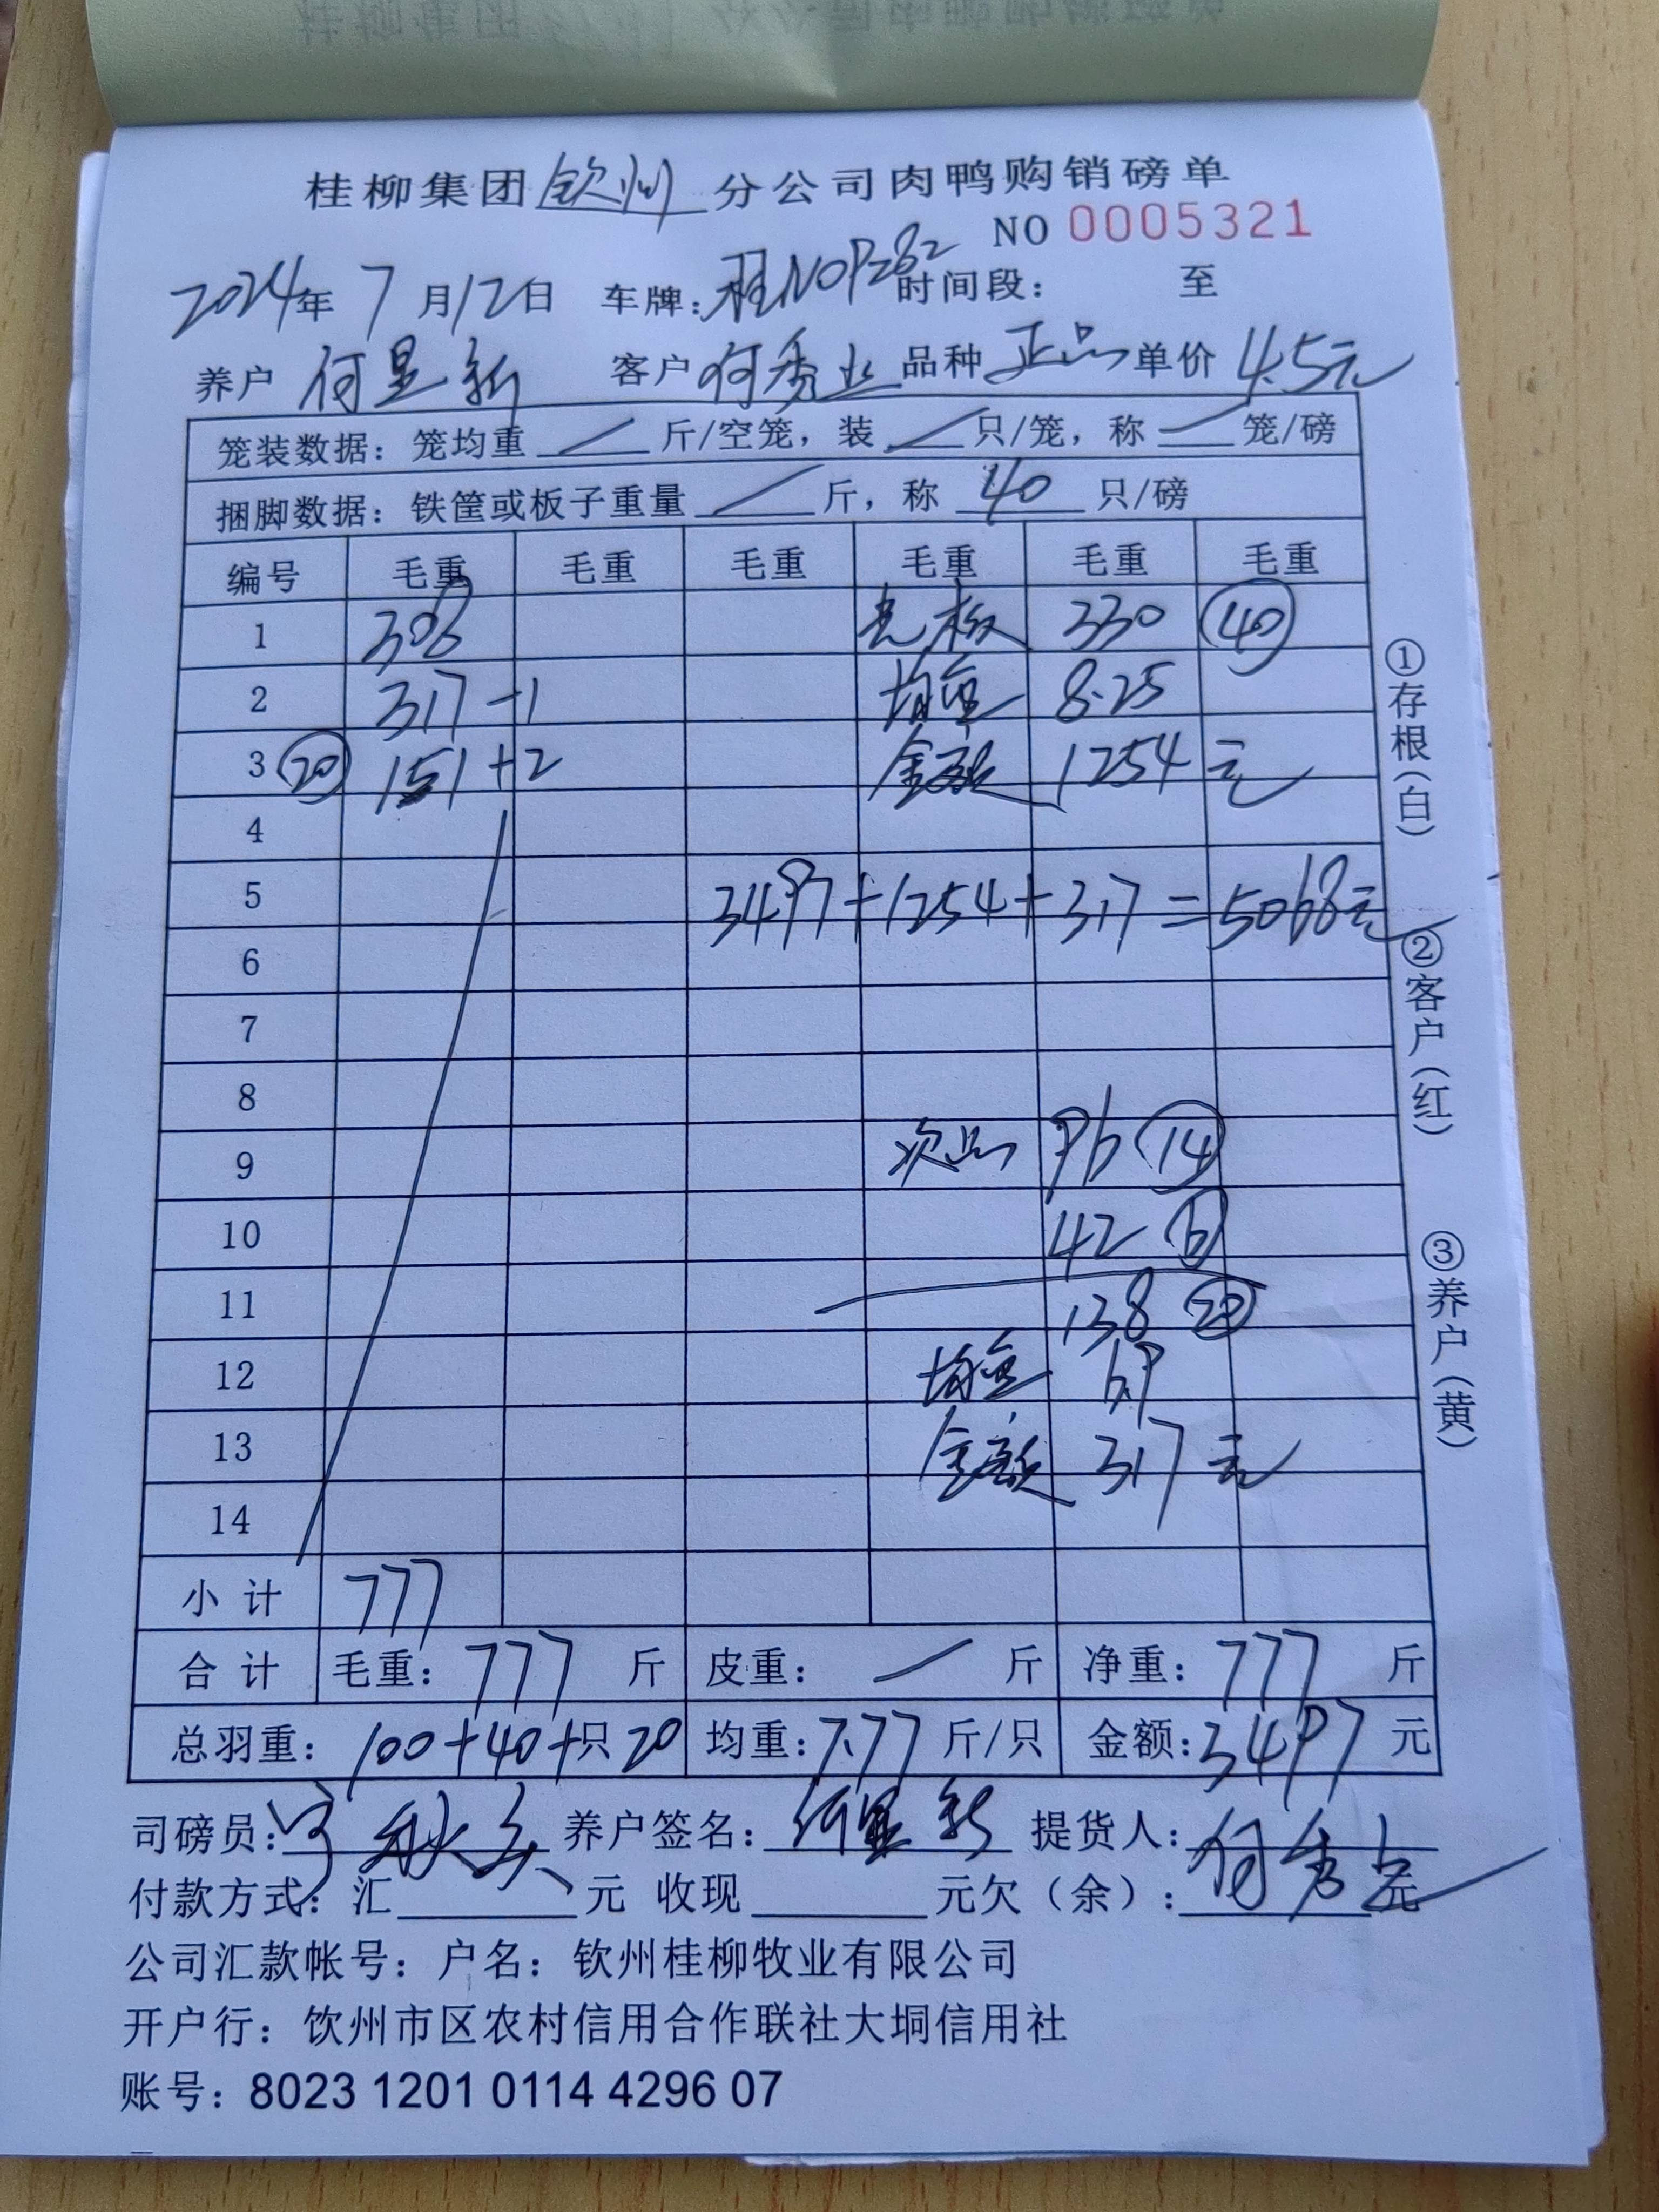 桂柳集团钦州分公司肉鸭购销磅单
NO 0005321
2024年7月12日 车牌:桂N0P262 时间段: 至
养户 何显新 客户 何秀 品种 正品 单价 4.5元
笼装数据: 笼均重 / 斤/空笼, 装 / 只/笼, 称 / 笼/磅
捆脚数据: 铁筐或板子重量 / 斤, 称 40 只/磅
编号 毛重 毛重 毛重 毛重 毛重 毛重
1 308 光板 330 40
2 317-1 均重 8.25
3 20 151+2 金额 1254 元
4
5 3497+1254+317=5068元
6
7
8
9 次品 96 14
10 42 6
11 138 20
12 均重 6.9
13 金额 317 元
14
小计 777
合计 毛重: 777 斤 皮重: / 斤 净重: 777 斤
总羽重: 100+40+只20 均重:7.77斤/只 金额:3497元
司磅员: 秋 养户签名: 何显新 提货人: 何秀
付款方式: 汇 元 收现 元欠(余): 元
公司汇款帐号: 户名: 钦州桂柳牧业有限公司
开户行: 钦州市区农村信用合作联社大垌信用社
账号: 8023 1201 0114 4296 07
①存根(白)
②客户(红)
③养户(黄)